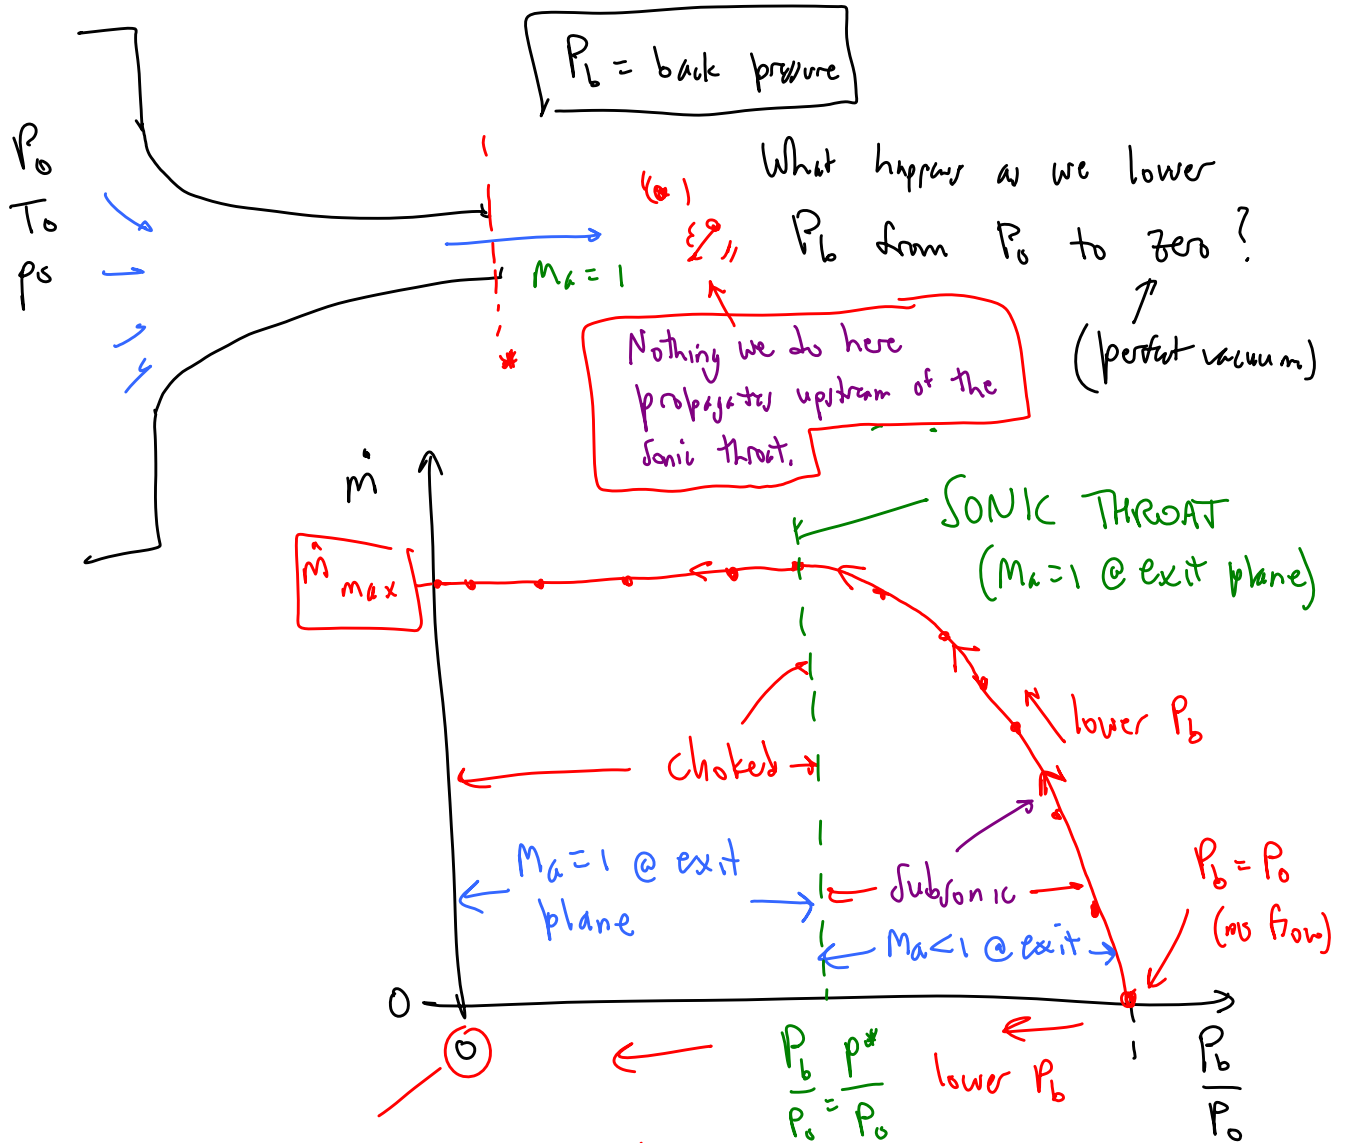 P_b = back pressure
P_0
T_0
ρ_0
What happens as we lower
P_b from P_0 to zero?
(perfect vacuum)
Ma = 1
*
Nothing we do here
propagates upstream of the
sonic throat.
ṁ
SONIC THROAT
(Ma=1 @ exit plane)
ṁ max
lower P_b
choked
Ma=1 @ exit
plane
subsonic
Ma<1 @ exit
P_b = P_0
(no flow)
0
0
P_b/P_0 = P*/P_0
lower P_b
1
P_b/P_0